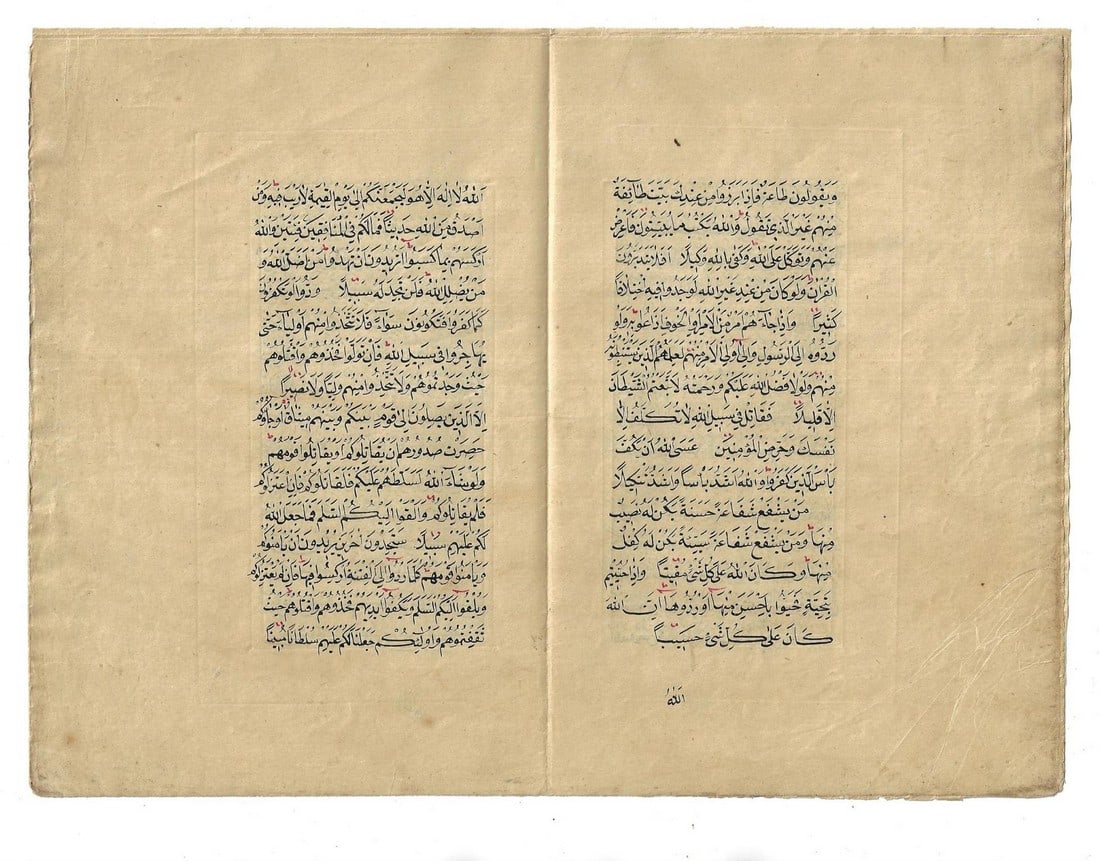 وَيَقُولُونَ طَاعَةٌ فَإِذَا بَرَزُوا مِنْ عِنْدِكَ بَيَّتَ طَائِفَةٌ
مِنْهُمْ غَيْرَ الَّذِي تَقُولُ وَاللهُ يَكْتُبُ مَا يُبَيِّتُونَ فَاَعْرِضْ
عَنْهُمْ وَتَوَكَّلْ عَلَى اللهِ وَكَفَى بِاللهِ وَكِيلًا اَفَلَا يَتَدَبَّرُونَ
الْقُرْاٰنَ وَلَوْ كَانَ مِنْ عِنْدِ غَيْرِ اللهِ لَوَجَدُوا فِيهِ اخْتِلَافًا
كَثِيرًا وَاِذَا جَاءَهُمْ اَمْرٌ مِنَ الْاَمْنِ اَوِ الْخَوْفِ اَذَاعُوا بِهِ وَلَوْ
رَدُّوهُ اِلَى الرَّسُولِ وَاِلَى اُولِى الْاَمْرِ مِنْهُمْ لَعَلِمَهُ الَّذِينَ يَسْتَنْبِطُونَهُ
مِنْهُمْ وَلَوْلَا فَضْلُ اللهِ عَلَيْكُمْ وَرَحْمَتُهُ لَاتَّبَعْتُمُ الشَّيْطَانَ
اِلَّا قَلِيلًا فَقَاتِلْ فِى سَبِيلِ اللهِ لَا تُكَلَّفُ اِلَّا
نَفْسَكَ وَحَرِّضِ الْمُؤْمِنِينَ عَسَى اللهُ اَنْ يَكُفَّ
بَأْسَ الَّذِينَ كَفَرُوا وَاللهُ اَشَدُّ بَأْسًا وَاَشَدُّ تَنْكِيلًا
مَنْ يَشْفَعْ شَفَاعَةً حَسَنَةً يَكُنْ لَهُ نَصِيبٌ
مِنْهَا وَمَنْ يَشْفَعْ شَفَاعَةً سَيِّئَةً يَكُنْ لَهُ كِفْلٌ
مِنْهَا وَكَانَ اللهُ عَلَى كُلِّ شَىْءٍ مُقِيتًا وَاِذَا حُيِّيتُمْ
بِتَحِيَّةٍ فَحَيُّوا بِاَحْسَنَ مِنْهَا اَوْ رُدُّوهَا اِنَّ اللهَ
كَانَ عَلَى كُلِّ شَىْءٍ حَسِيبًا
اَللهُ
اَللهُ لَا اِلٰهَ اِلَّا هُوَ لَيَجْمَعَنَّكُمْ اِلَى يَوْمِ الْقِيٰمَةِ لَا رَيْبَ فِيهِ وَمَنْ
اَصْدَقُ مِنَ اللهِ حَدِيثًا فَمَا لَكُمْ فِى الْمُنَافِقِينَ فِئَتَيْنِ وَاللهُ
اَرْكَسَهُمْ بِمَا كَسَبُوا اَتُرِيدُونَ اَنْ تَهْدُوا مَنْ اَضَلَّ اللهُ وَ
مَنْ يُضْلِلِ اللهُ فَلَنْ تَجِدَ لَهُ سَبِيلًا وَدُّوا لَوْ تَكْفُرُونَ
كَمَا كَفَرُوا فَتَكُونُونَ سَوَاءً فَلَا تَتَّخِذُوا مِنْهُمْ اَوْلِيَاءَ حَتَّى
يُهَاجِرُوا فِى سَبِيلِ اللهِ فَاِنْ تَوَلَّوْا فَخُذُوهُمْ وَاقْتُلُوهُمْ
حَيْثُ وَجَدْتُمُوهُمْ وَلَا تَتَّخِذُوا مِنْهُمْ وَلِيًّا وَلَا نَصِيرًا
اِلَّا الَّذِينَ يَصِلُونَ اِلَى قَوْمٍ بَيْنَكُمْ وَبَيْنَهُمْ مِيثَاقٌ اَوْ جَاؤُكُمْ
حَصِرَتْ صُدُورُهُمْ اَنْ يُقَاتِلُوكُمْ اَوْ يُقَاتِلُوا قَوْمَهُمْ
وَلَوْ شَاءَ اللهُ لَسَلَّطَهُمْ عَلَيْكُمْ فَلَقَاتَلُوكُمْ فَاِنِ اعْتَزَلُوكُمْ
فَلَمْ يُقَاتِلُوكُمْ وَاَلْقَوْا اِلَيْكُمُ السَّلَمَ فَمَا جَعَلَ اللهُ
لَكُمْ عَلَيْهِمْ سَبِيلًا سَتَجِدُونَ اٰخَرِينَ يُرِيدُونَ اَنْ يَأْمَنُوكُمْ
وَيَأْمَنُوا قَوْمَهُمْ كُلَّمَا رُدُّوا اِلَى الْفِتْنَةِ اُرْكِسُوا فِيهَا فَاِنْ لَمْ يَعْتَزِلُوكُمْ
وَيُلْقُوا اِلَيْكُمُ السَّلَمَ وَيَكُفُّوا اَيْدِيَهُمْ فَخُذُوهُمْ وَاقْتُلُوهُمْ حَيْثُ
ثَقِفْتُمُوهُمْ وَاُولٰئِكُمْ جَعَلْنَا لَكُمْ عَلَيْهِمْ سُلْطَانًا مُبِينًا